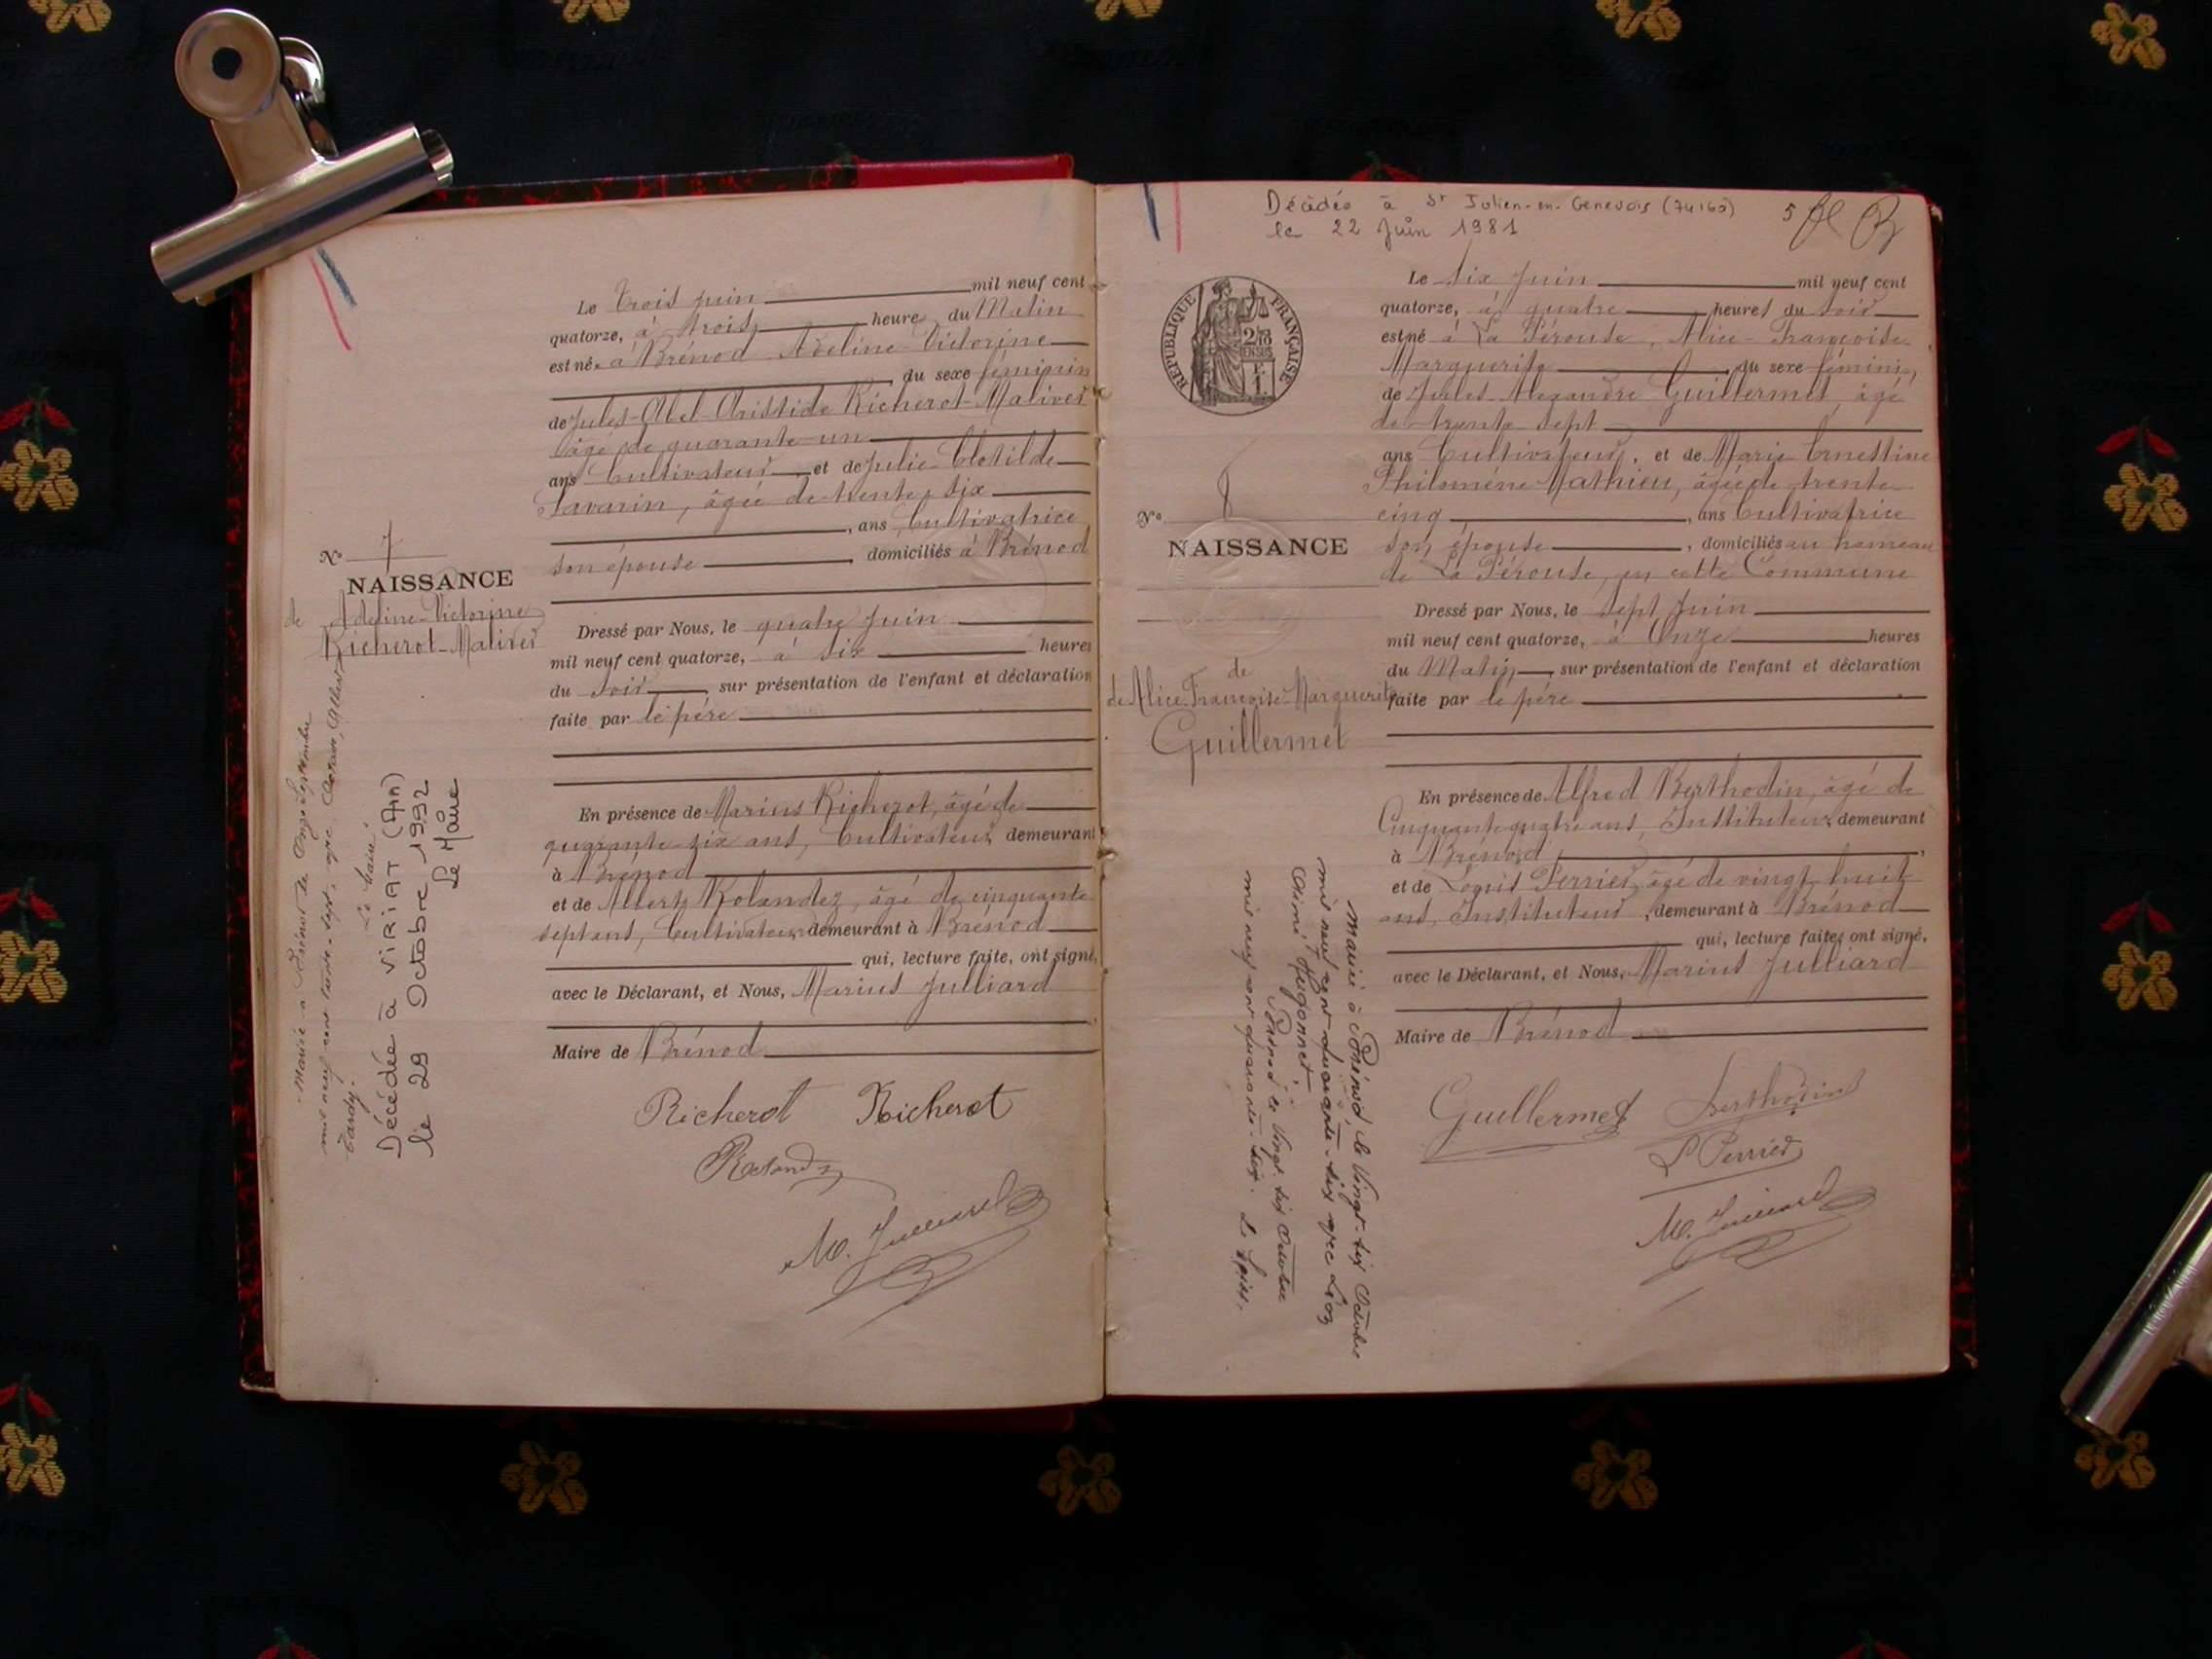 Le trois juin mil neuf cent
quatorze, à trois heure du Matin
est né e à Brénod Adeline-Victorine
du sexe féminin
de Jules-Abel-Aristide Richerot-Malivet
âgé de quarante-un
ans Cultivateur et de Julie-Clotilde
Savarin, âgée de trente six
, ans Cultivatrice
son épouse , domiciliés à Brénod
No 7
NAISSANCE
de Adeline-Victorine
Richerot-Malivet
Dressé par Nous, le quatre Juin
mil neuf cent quatorze, à six heures
du soir , sur présentation de l'enfant et déclaration
faite par le père
En présence de Marius Richerot, âgé de
quarante-six ans, Cultivateur demeurant
à Brénod
et de Albert Rolandez, âgé de cinquante
sept ans, Cultivateur demeurant à Brénod
qui, lecture faite, ont signé,
avec le Déclarant, et Nous, Marius Julliard
Maire de Brénod
Richerot Richerot
M. Julliard
Mariée à Brénod le onze Septembre
mil neuf cent trente-sept, avec Albert
Tardy.
Le Maire
Décédée à VIRIAT (Ain)
le 29 Octobre 1992
Le Maire
Décédée à St Julien-en-Genevois (74160)
le 22 Juin 1981
5
RÉPUBLIQUE FRANÇAISE
Le six Juin mil neuf cent
quatorze, à quatre heures du soir
est né à La Pérouse, Alice-Françoise
Marguerite du sexe féminin,
de Jules-Alexandre Guillermet, âgé
de trente sept
ans Cultivateur, et de Marie Ernestine
Philomène Mathieu, âgée de trente
cinq , ans Cultivatrice
son épouse , domiciliés au hameau
de La Pérouse, en cette Commune
No 8
NAISSANCE
de
de Alice-Françoise-Marguerite
Guillermet
Dressé par Nous, le sept Juin
mil neuf cent quatorze, à Onze heures
du Matin , sur présentation de l'enfant et déclaration
faite par le père
En présence de Alfred Berthodin, âgé de
Cinquante quatre ans, Instituteur demeurant
à Brénod ,
et de Louis Perrier, âgé de vingt huit
ans, Instituteur , demeurant à Brénod
qui, lecture faite, ont signé,
avec le Déclarant, et Nous, Marius Julliard
Maire de Brénod
Guillermet Berthodin
L Perrier
M. Julliard
Mariée à Brénod, le Vingt-six Octobre
mil neuf cent quarante-six avec Léon
Aimé Hugonnet
Brénod le Vingt six Octobre
mil neuf cent quarante-six.